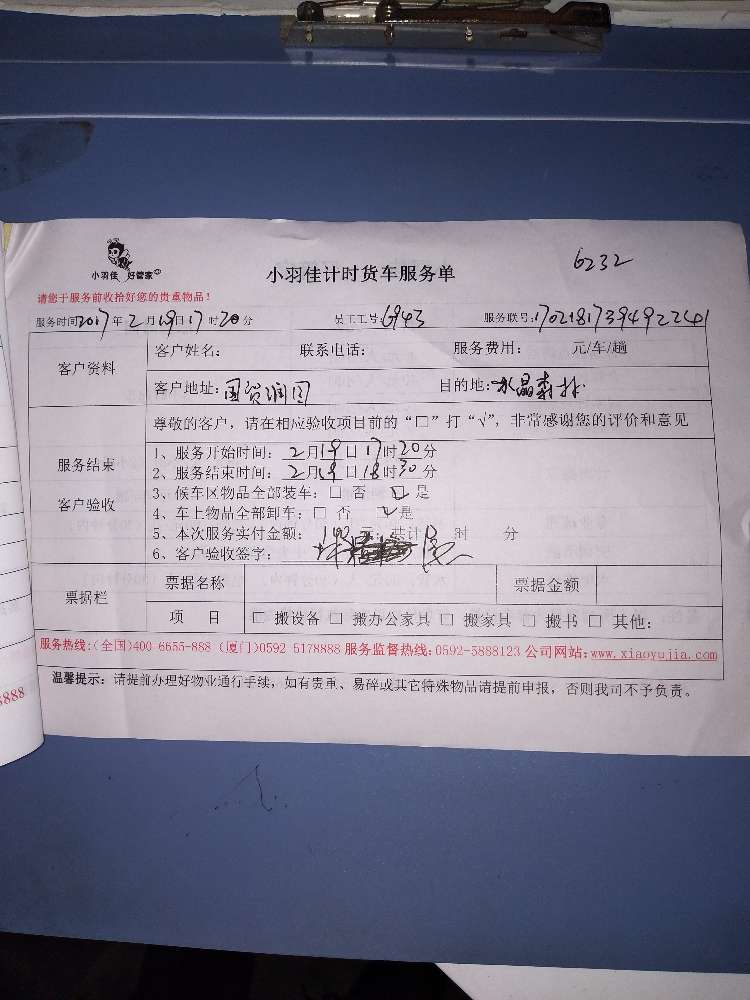 6232
小羽佳 好管家
小羽佳计时货车服务单
请您于服务前收拾好您的贵重物品！
服务时间2017年2月19日17时20分 员工工号:6943 服务联号:17021817394922241
客户资料 客户姓名： 联系电话： 服务费用： 元/车/趟
客户地址：国贸润园 目的地：水晶森林
尊敬的客户，请在相应验收项目前的“□”打“√”，非常感谢您的评价和意见
服务结束
客户验收
1、服务开始时间：2月19日17时20分
2、服务结束时间：2月19日18时30分
3、候车区物品全部装车：□ 否 ☑ 是
4、车上物品全部卸车：□ 否 ☑ 是
5、本次服务实付金额： 元；共计 时 分
6、客户验收签字：
票据栏 票据名称 票据金额
项 目 □ 搬设备 □ 搬办公家具 □ 搬家具 □ 搬书 □ 其他：
服务热线:(全国)400-6655-888 (厦门)0592 5178888 服务监督热线:0592-5888123 公司网站:www.xiaoyujia.com
温馨提示：请提前办理好物业通行手续，如有贵重、易碎或其它特殊物品请提前申报，否则我司不予负责。
8888